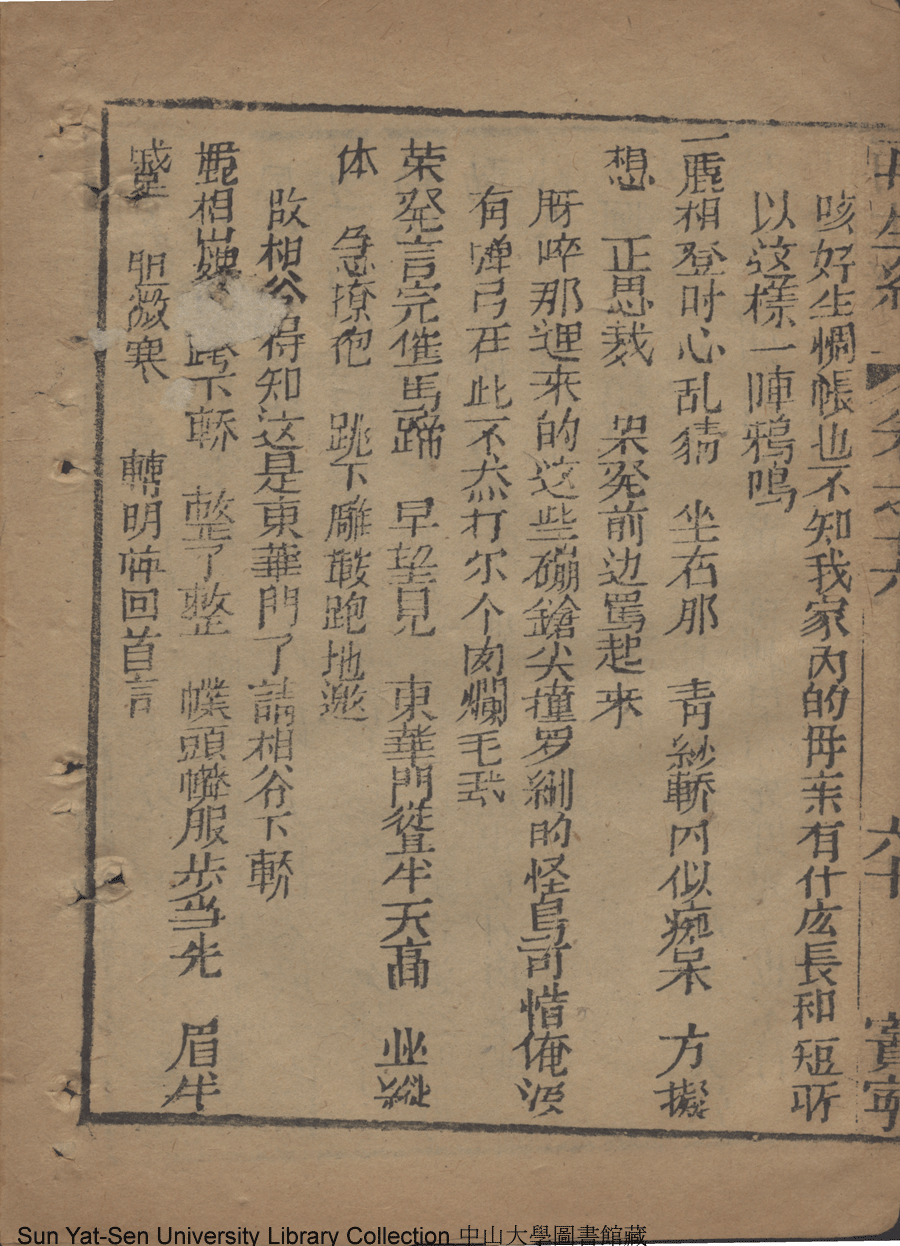 再生縁 卷之十六 六十 寳寧
咳好生惆帳也不知我家內的毋亲有什庅長和短所
以这様一陣鸦鳴
一麀相登时心乱猜 坐右那 青紗轎內似痴呆 方擬
想 正思裁 栄発前边罵起来
厮啐那逕来的这些硼鎗尖撞罗網的怪鳥可惜俺没
有弹弓在此不然打尔个肉爛毛
荣発言完催馬蹄 早望見 東華門聳半天髙 並縱
体 急撩袍 跳下雕鞍跑地邀
啟相公得知这是東華門了請相公下轎
相 下轎 整了整 幞頭蟒服步当先 眉半
蹙 胆微寒 轉明眸回首言
Sun Yat-Sen University Library Collection 中山大學圖書館藏